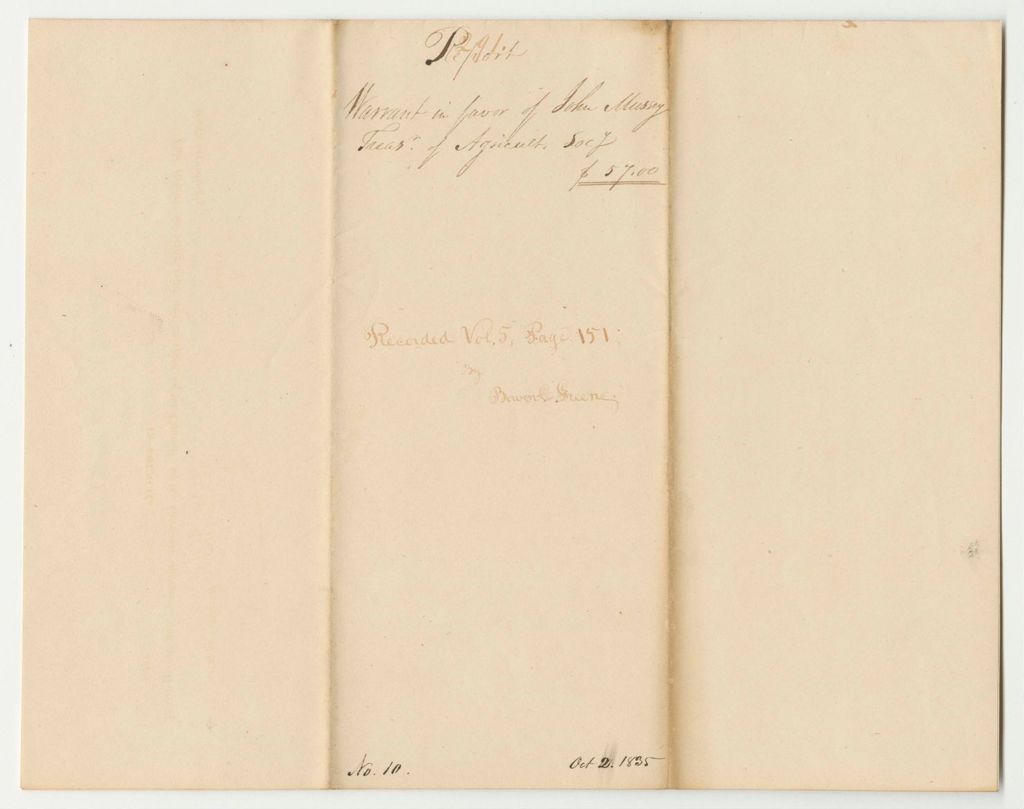 Report
Warrant in favor of John Mussey
Treasr. of Agricult. Socy
$ 57.00
Recorded Vol. 5, Page 151.
By
Greene
No. 10.
Oct 2. 1835